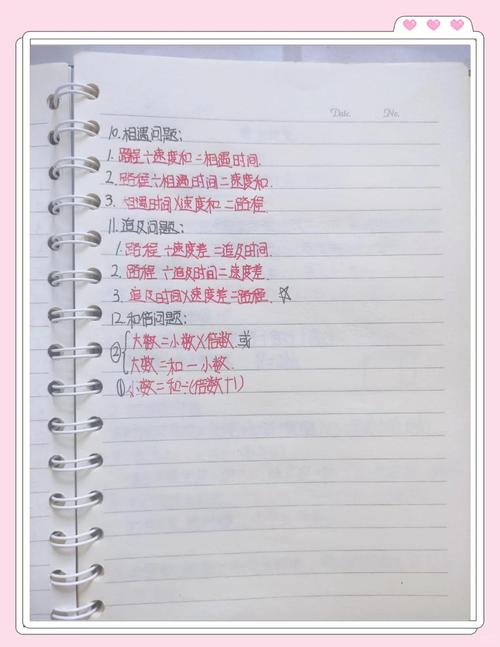 Date. No.
10.相遇问题:
1.路程÷速度和=相遇时间.
2.路程÷相遇时间=速度和.
3.相遇时间×速度和=路程.
11.追及问题:
1.路程÷速度差=追及时间.
2.路程÷追及时间=速度差.
3.追及时间×速度差=路程.☆
12.和倍问题:
②{大数=小数×倍数.或
大数=和-小数.
①小数=和÷(倍数+1)